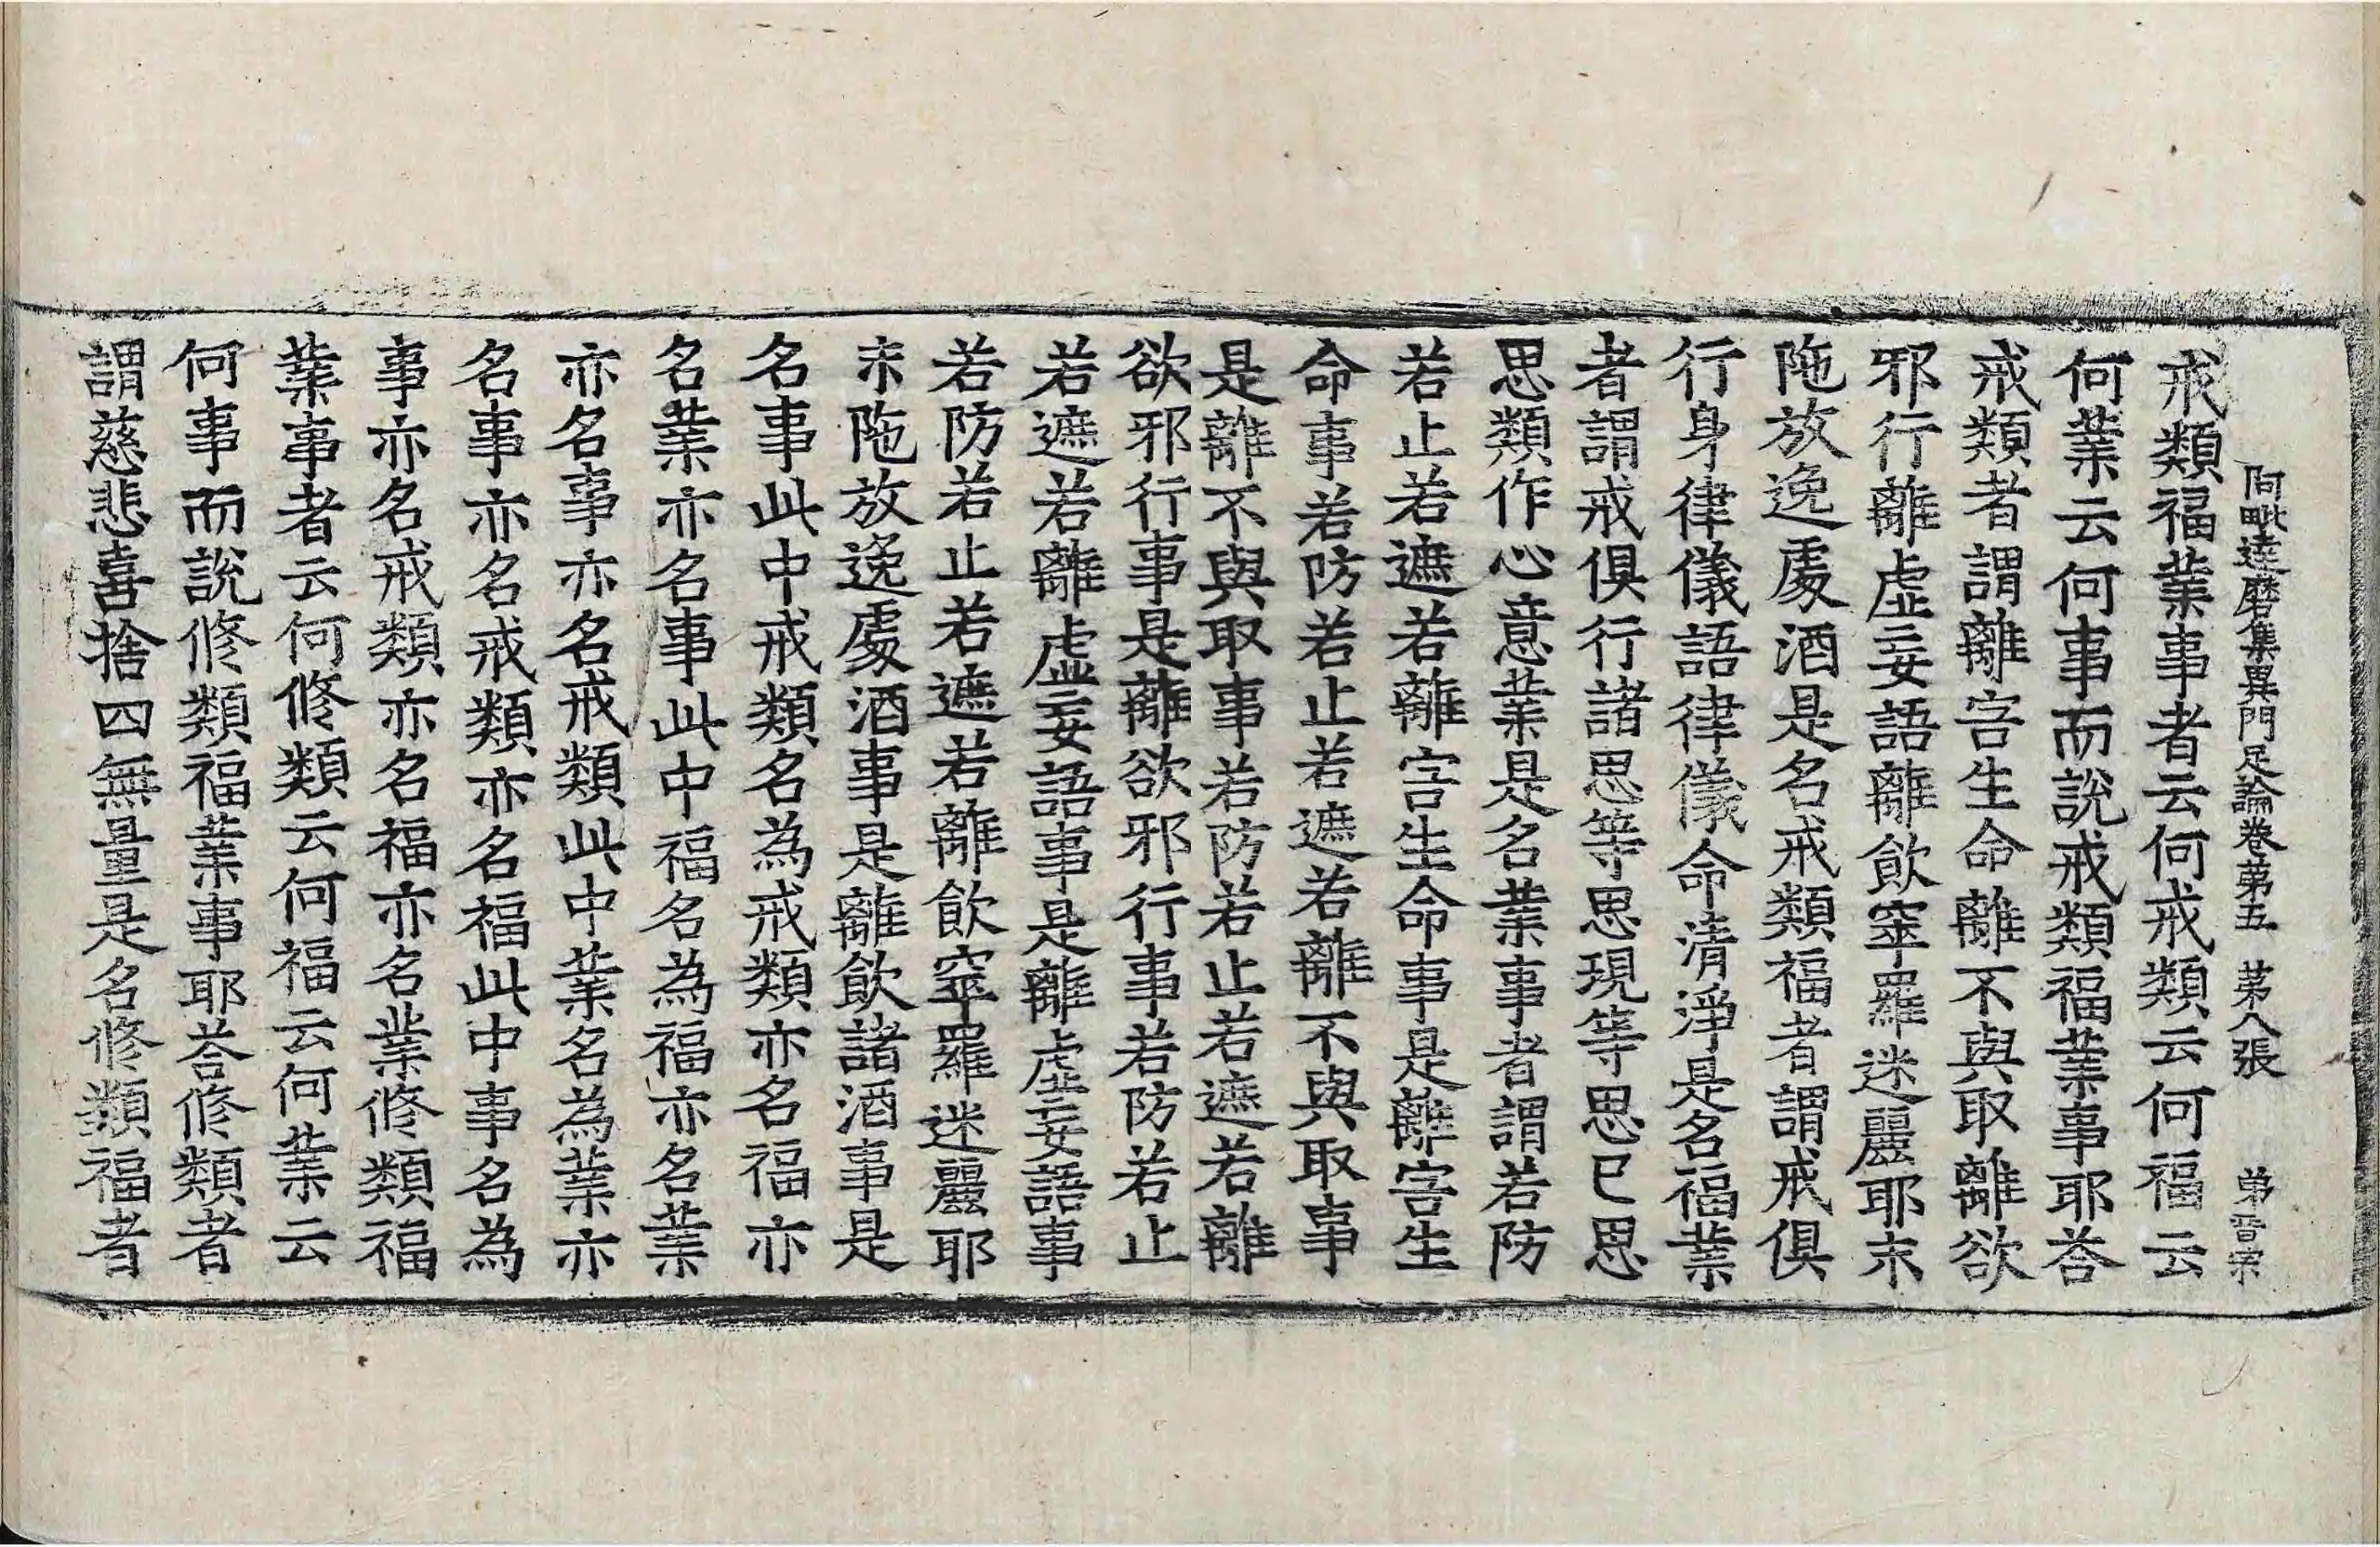 阿毗達磨集異門足論卷第五 苐八張 弟晋宗
戒類福業事者云何戒類云何福云
何業云何事而說戒類福業事耶荅
戒類者謂離害生命離不與取離欲
邪行離虛妄語離飮窣羅迷麗耶末
陁放逸處酒是名戒類福者謂戒俱
行身律儀語律儀命清淨是名福業
者謂戒俱行諸思等思現等思已思
思類作心意業是名業事者謂若防
若止若遮若離害生命事是離害生
命事若防若止若遮若離不與取事
是離不與取事若防若止若遮若離
欲邪行事是離欲邪行事若防若止
若遮若離虛妄語事是離虛妄語事
若防若止若遮若離飮窣羅迷麗耶
末陁放逸處酒事是離飮諸酒事是
名事此中戒類名為戒類亦名福亦
名業亦名事此中福名為福亦名業
亦名事亦名戒類此中業名為業亦
名事亦名戒類亦名福此中事名為
事亦名戒類亦名福亦名業修類福
業事者云何修類云何福云何業云
何事而說修類福業事耶荅修類者
謂慈悲喜捨四無量是名修類福者